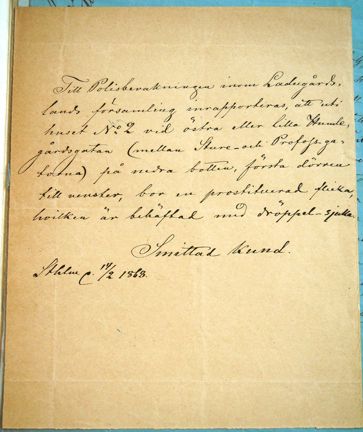 Till Polisbevakningen inom Ladugårds-
lands församling inrapporteras, att uti
huset No 2 vid östra eller lilla Humle-
gårdsgatan (mellan Sture- och Profoss-ga-
torna) på nedra botten, första dörren
till venster, bor en prostituerad flicka,
hvilken är behäftad med dröppel-sjuka.
Smittad Kund.
Sthlm d. 14/2 1868.